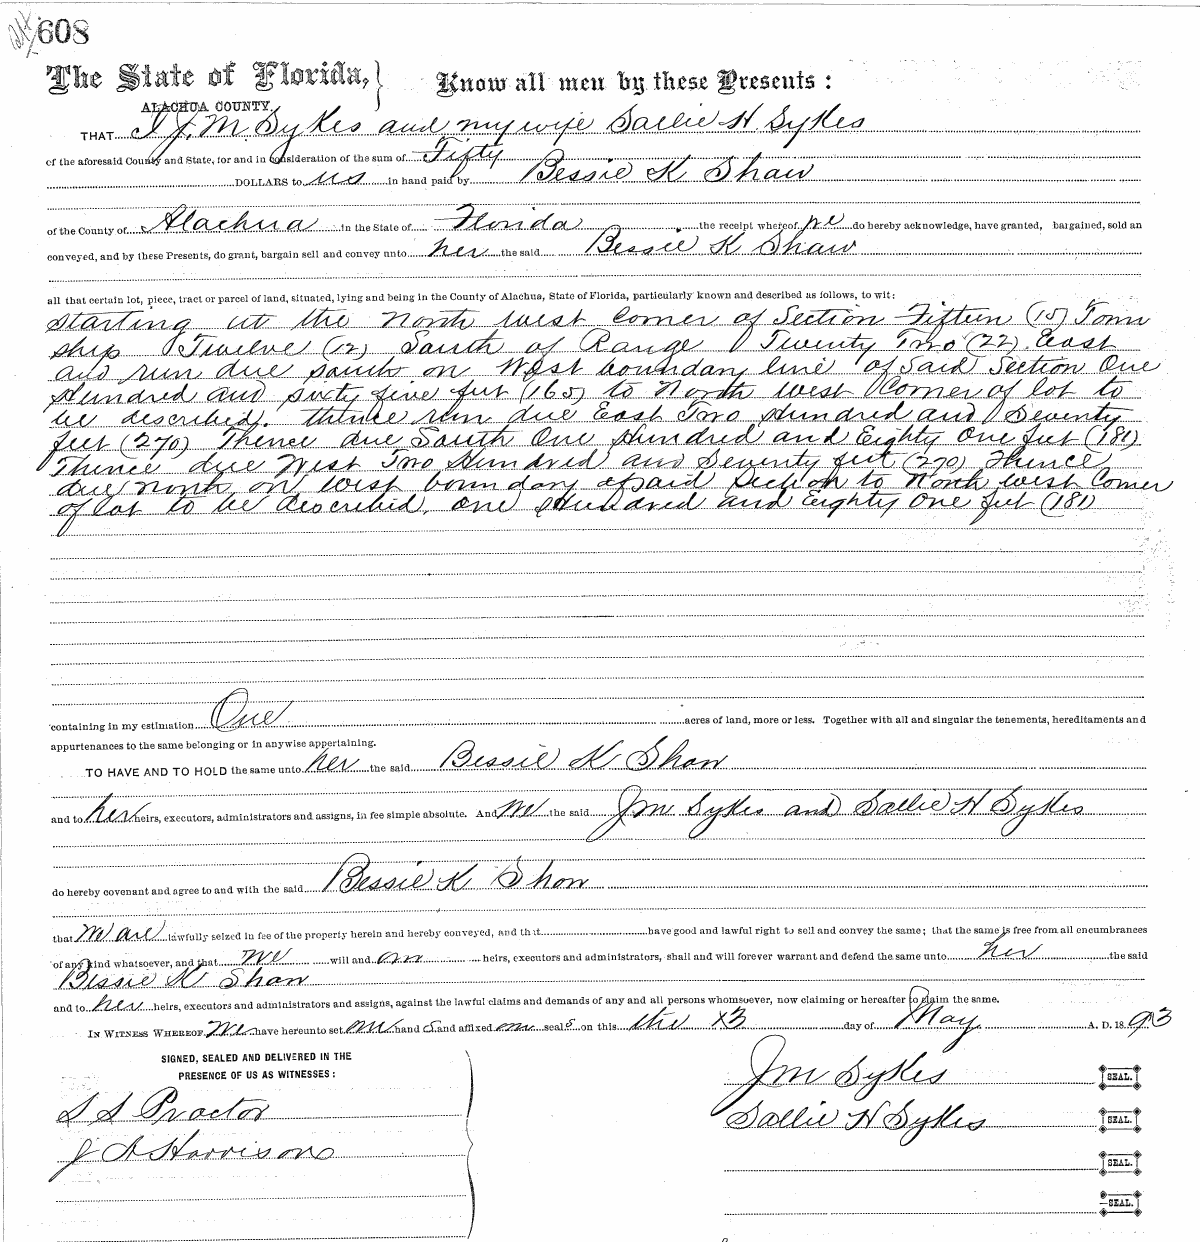 608
The State of Florida,
Know all men by these Presents :
ALACHUA COUNTY.
THAT I J. M. Sykes and my wife Sallie H Sykes
of the aforesaid County and State, for and in consideration of the sum of Fifty
DOLLARS to us in hand paid by Bessie K Shaw
of the County of Alachua in the State of Florida the receipt whereof we do hereby acknowledge, have granted, bargained, sold an
conveyed, and by these Presents, do grant, bargain sell and convey unto her the said Bessie K Shaw
all that certain lot, piece, tract or parcel of land, situated, lying and being in the County of Alachua, State of Florida, particularly known and described as follows, to wit:
Starting at the North West Corner of Section Fifteen (15) Town
ship Twelve (12) South of Range Twenty Two (22) East
and run due south on West boundary line of Said Section One
Hundred and sixty five feet (165) to North West Corner of lot to
be described. thence run due East Two Hundred and Seventy
feet (270) Thence due South One Hundred and Eighty One feet (181)
Thence due West Two Hundred and Seventy feet (270) Thence
due North on West boundary of said section to North West Corner
of lot to be described, One Hundred and Eighty One feet (181)
containing in my estimation One acres of land, more or less. Together with all and singular the tenements, hereditaments and
appurtenances to the same belonging or in anywise appertaining.
TO HAVE AND TO HOLD the same unto her the said Bessie K Shaw
and to her heirs, executors, administrators and assigns, in fee simple absolute. And we the said J M Sykes and Sallie H Sykes
do hereby covenant and agree to and with the said Bessie K Shaw
that we are lawfully seized in fee of the property herein and hereby conveyed, and that have good and lawful right to sell and convey the same; that the same is free from all encumbrances
of any kind whatsoever, and that we will and our heirs, executors and administrators, shall and will forever warrant and defend the same unto her the said
Bessie K Shaw
and to her heirs, executors and administrators and assigns, against the lawful claims and demands of any and all persons whomsoever, now claiming or hereafter to claim the same.
IN WITNESS WHEREOF, we have hereunto set our hand s and affixed our seal s on this the day of May A. D. 18 93
SIGNED, SEALED AND DELIVERED IN THE
PRESENCE OF US AS WITNESSES :
J M Sykes SEAL.
S S Proctor
Sallie H Sykes SEAL.
J A Harrison
SEAL.
SEAL.